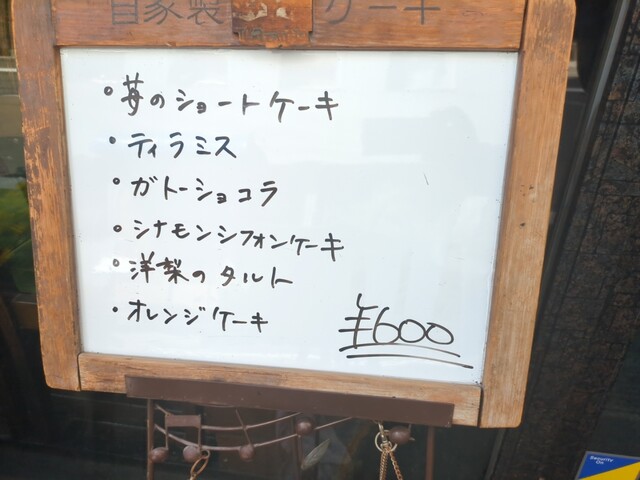 自家製 ケーキ
・苺のショートケーキ
・ティラミス
・ガトーショコラ
・シナモンシフォンケーキ
・洋梨のタルト
・オレンジケーキ
¥600
Security
On